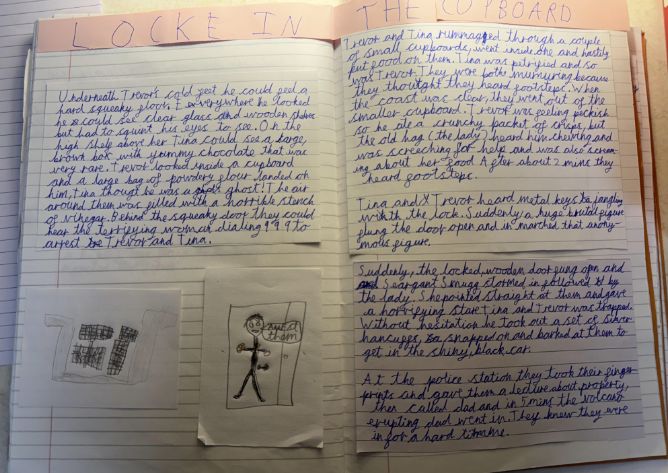 LOCKE IN THE CUPBOARD
Underneath Trevor's cold feet he could feel a
hard squeaky floor. Everywhere he looked
he could see clear glass and wooden
but had to squint his eyes to see. On the
high shelf above her Tina could see a large,
brown box with yummy chocolate that was
very rare. Trevor looked inside a cupboard
and a large bag of powdery flour landed on
him, Tina though he was a ghost! The air
around them was filled with a horrible stench
of vinegar. Behind the squeaky door they could
hear the terrifying woman dialing 999 to
arrest Trevor and Tina.
arrest
them
Trevor and Tina rummaged through a couple
of small cupboards, went inside one and hastily
put food on them. Tina was petrified and so
was Trevor. They were both mumuring because
they thoutght they heard footsteps. When
the coast was clear, they went out of the
smaller cupboard. Trevor was feeling peckish
so he ate a crunchy packet of crisps, but
the old hag (the lady) heard him chewing and
was screeching for help and was also scream-
ing about her food. After about 2 mins they
heard footsteps.
Tina and Trevor heard metal keys jangling
with the lock. Suddenly a huge brutal figure
flung the door open and in marched that anony-
mous figure.
Suddenly, the locked, wooden door fung open and
Seargant Smugg stormed in followed by
the lady. She pointed straight at them and gave
a horrifying stare. Tina and Trevor was trapped.
Without hesitation he took out a set of silver
hancuffs, snapped on and barked at them to
get in the shiny, black car.
At the police station they took their finger
prints and gave them a lecture about property,
then called dad and in 5 mins the volcano
erupting dad went in. They knew they were
in for a hard time.